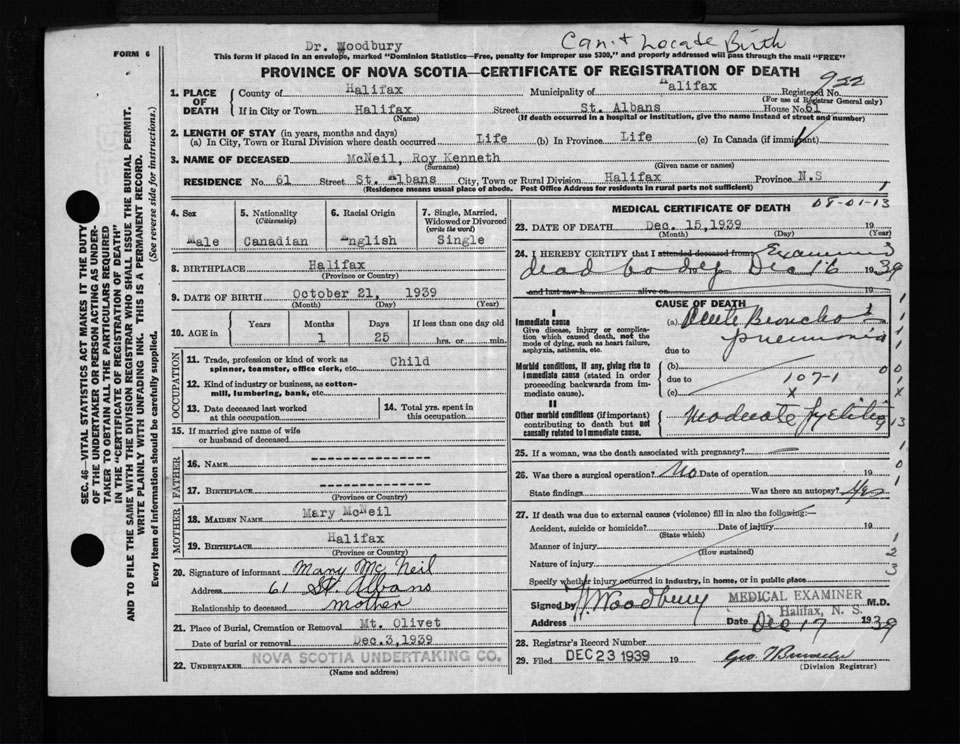 FORM 6
Dr. Woodbury
Can't Locate Birth
This form if placed in an envelope, marked "Dominion Statistics—Free, penalty for improper use $300," and properly addressed will pass through the mail "FREE"
PROVINCE OF NOVA SCOTIA—CERTIFICATE OF REGISTRATION OF DEATH
SEC. 46—VITAL STATISTICS ACT MAKES IT THE DUTY
OF THE UNDERTAKER OR PERSON ACTING AS UNDER-
TAKER TO OBTAIN ALL THE PARTICULARS REQUIRED
IN THE "CERTIFICATE OF REGISTRATION OF DEATH"
AND TO FILE THE SAME WITH THE DIVISION REGISTRAR WHO SHALL ISSUE THE BURIAL PERMIT.
WRITE PLAINLY WITH UNFADING INK. THIS IS A PERMANENT RECORD.
Every item of information should be carefully supplied. (See reverse side for instructions.)
1. PLACE OF DEATH
County of Halifax Municipality of Halifax Registered No. 922
(For use of Registrar General only)
If in City or Town Halifax Street St. Albans House No. 61
(Name) (If death occurred in a hospital or institution, give the name instead of street and number)
2. LENGTH OF STAY (in years, months and days)
(a) In City, Town or Rural Division where death occurred Life (b) In Province Life (c) In Canada (if immigrant)
3. NAME OF DECEASED McNeil, Roy Kenneth
(Surname) (Given name or names)
RESIDENCE No. 61 Street St. Albans City, Town or Rural Division Halifax Province N.S
(Residence means usual place of abode. Post Office Address for residents in rural parts not sufficient)
4. Sex
Male
5. Nationality
(Citizenship)
Canadian
6. Racial Origin
English
7. Single, Married,
Widowed or Divorced
(write the word)
Single
8. BIRTHPLACE Halifax
(Province or Country)
9. DATE OF BIRTH October 21, 1939
(Month) (Day) (Year)
10. AGE in
Years Months Days If less than one day old
1 25 hrs. or min.
OCCUPATION
11. Trade, profession or kind of work as
spinner, teamster, office clerk, etc. Child
12. Kind of industry or business, as cotton-
mill, lumbering, bank, etc.
13. Date deceased last worked
at this occupation
14. Total yrs. spent in
this occupation
15. If married give name of wife
or husband of deceased
FATHER
16. NAME ---------------
17. BIRTHPLACE --------------
(Province or Country)
MOTHER
18. MAIDEN NAME Mary McNeil
19. BIRTHPLACE Halifax
(Province or Country)
20. Signature of informant Mary Mc Neil
Address 61 St. Albans
Relationship to deceased mother
21. Place of Burial, Cremation or Removal Mt. Olivet
Date of burial or removal Dec.3,1939
22. UNDERTAKER NOVA SCOTIA UNDERTAKING CO.
(Name and address)
MEDICAL CERTIFICATE OF DEATH 08-01-13
23. DATE OF DEATH Dec. 15,1939 19
(Month) (Day) (Year)
24. I HEREBY CERTIFY that I attended deceased from Examined
dead body Dec 16 1939
and last saw h alive on 19
CAUSE OF DEATH
I
Immediate cause
Give disease, injury or complica-
tion which caused death, not the
mode of dying, such as heart failure,
asphyxia, asthenia, etc.
(a) Acute Broncho
pneumonia
due to
Morbid conditions, if any, giving rise to
immediate cause (stated in order
proceeding backwards from im-
mediate cause).
(b)
due to 107-1
(c) x
II
Other morbid conditions (if important)
contributing to death but not
causally related to immediate cause.
Moderate Pyelitis
25. If a woman, was the death associated with pregnancy?
26. Was there a surgical operation? No Date of operation 19
State findings Was there an autopsy? Yes
27. If death was due to external causes (violence) fill in also the following:—
Accident, suicide or homicide? Date of injury 19
(State which)
Manner of injury
(How sustained)
Nature of injury
Specify whether injury occurred in industry, in home, or in public place
Signed by Woodbury MEDICAL EXAMINER M.D.
Halifax, N. S.
Address Date Dec 17 1939
28. Registrar's Record Number
29. Filed DEC 23 1939 19
(Division Registrar)